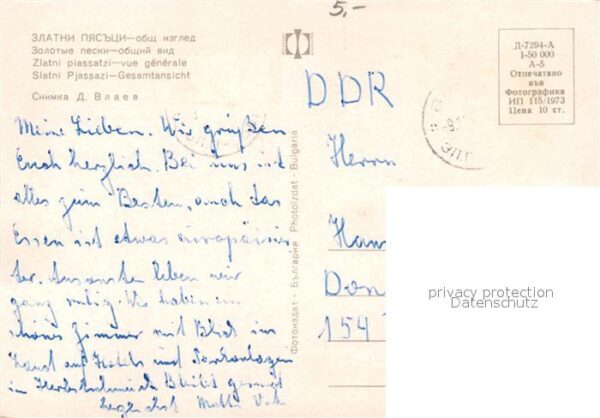 5,-
ЗЛАТНИ ПЯСЪЦИ—общ изглед
Золотые пески—общий вид
Zlatni piassatzi—vue générale
Slatni Pjassazi—Gesamtansicht
Снимка Д. Влаев
Д-7294-А
1-50 000
А-5
Отпечатано
във
Фотографика
ИП 115/1973
Цена 10 ст.
DDR
Herrn
Han
Don
154
Meine Lieben. Wir grüßen
Euch herzlich. Bei uns ist
alles zum Besten, auch das
Essen ist etwas europäisie
ter. Ansonsten leben wir
ganz ruhig. Wir haben ein
schönes Zimmer mit Blick ins
Land auf Hotels und Parkanlagen
im Bleibt gesund
herzlichst Mutti Vati
Фотоиздат - България Photoizdat - Bulgaria
privacy protection
Datenschutz